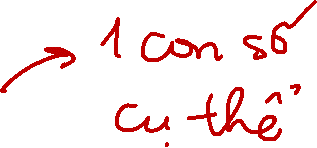 → 1 con số
cụ thể